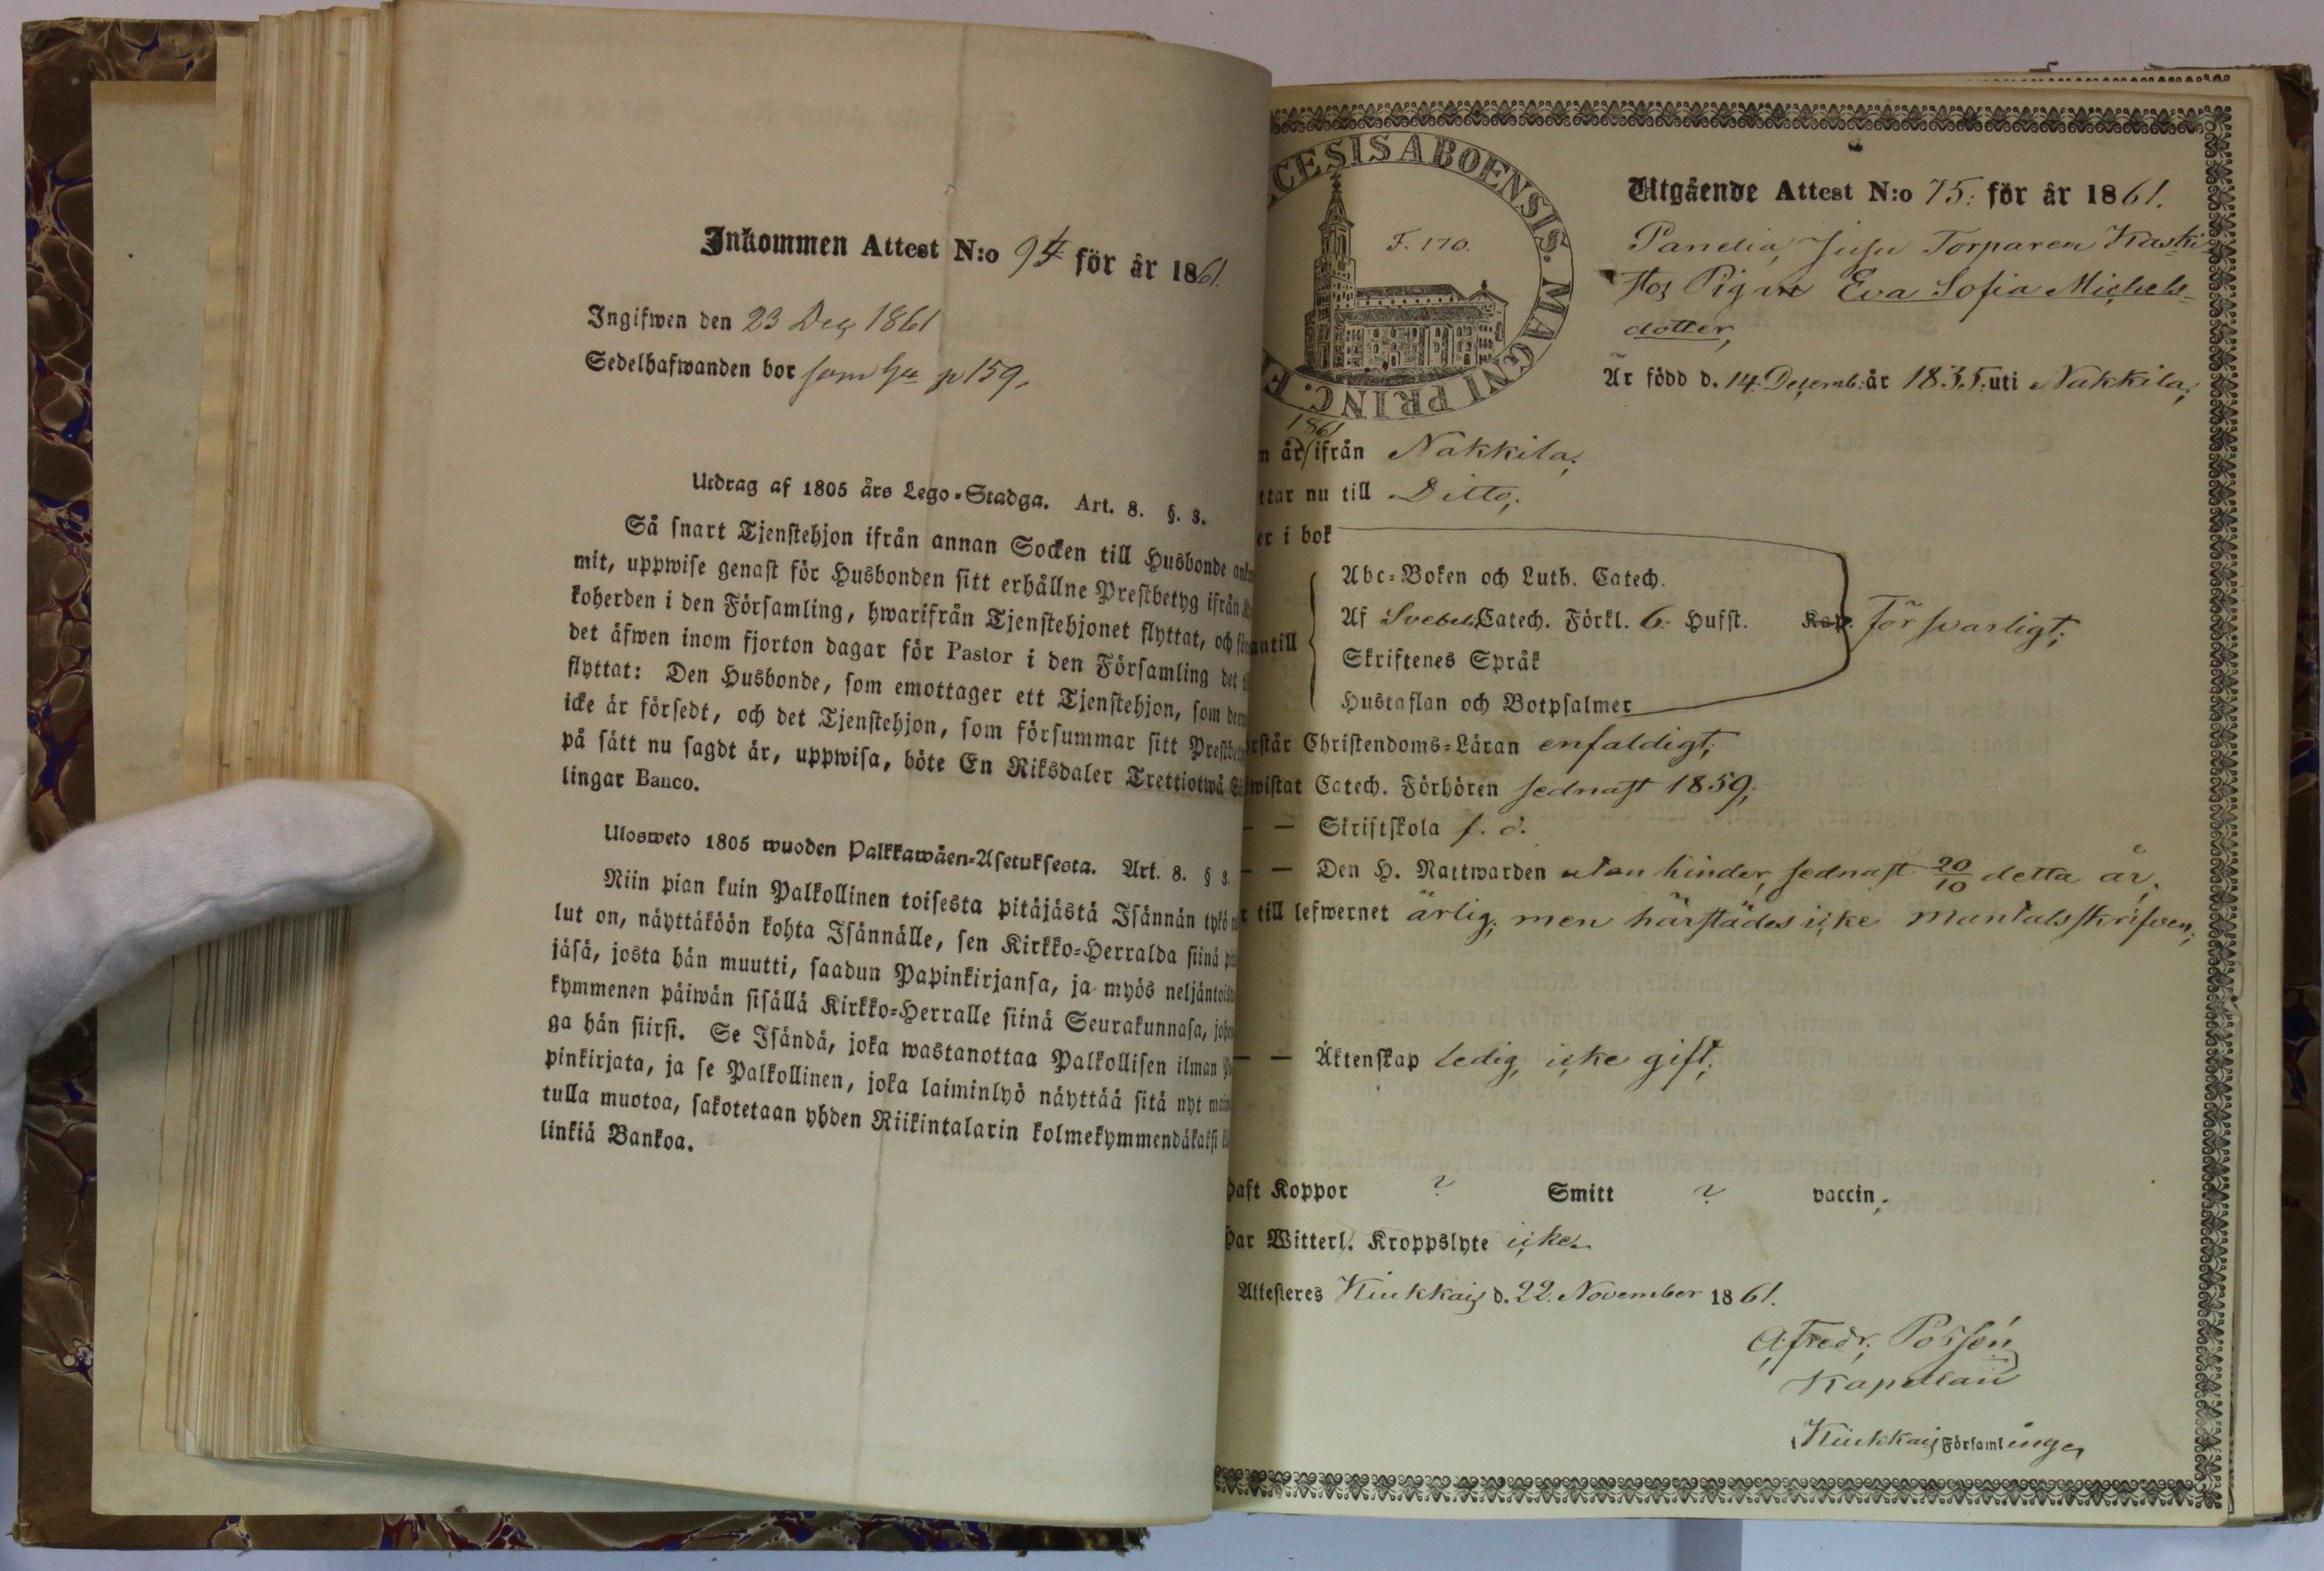 Inkommen Attest N:o 94 för år 1861.
Ingifwen den 23 Dec 1861
Sedelhafwanden bor som p 159.
Utdrag af 1805 års Lego-Stadga. Art. 8. §. 3.
Så snart Tjenstehjon ifrån annan Socken till Husbonde
mit, uppwise genast för Husbonden sitt erhållne Prestbetyg ifrån
koherden i den Församling, hwarifrån Tjenstehjonet flyttat, och
det äfwen inom fjorton dagar för Pastor i den Församling det
flyttat: Den Husbonde, som emottager ett Tjenstehjon, som
icke är försedt, och det Tjenstehjon, som försummar sitt
på sätt nu sagdt är, uppwisa, böte En Riksdaler Trettiotwå
lingar Banco.
Ulosweto 1805 wuoden Palkkawäen-Asetuksesta. Art. 8. § 3.
Niin pian kuin Palkollinen toisesta pitäjästä Isännän tykö
lut on, näyttäköön kohta Isännälle, sen Kirkko-Herralda siinä
jäsä, josta hän muutti, saadun Papinkirjansa, ja myös
kymmenen päiwän sisällä Kirkko-Herralle siinä Seurakunnasa,
ga hän siirsi. Se Isändä, joka wastanottaa Palkollisen ilman
pinkirjata, ja se Palkollinen, joka laiminlyö näyttää sitä nyt
tulla muotoa, sakotetaan yhden Riikintalarin kolmekymmendäkaksi
linkiä Bankoa.
CESIS ABOENSIS. MAGNI PRINC. F
F. 170.
Utgående Attest N:o 75: för år 1861.
Panelia, Jusu Torparen Kaski
stos Pigan Eva Sofia Michels-
dotter,
Är född d. 14. Decemb: år 1835: uti Nakkila;
1861
n år ifrån Nakkila;
ttar nu till Ditto;
er i bok
antill
Abc-Boken och Luth. Catech.
Af Svebel. Catech. Förkl. 6. Hufst. Kap. Försvarligt;
Skriftenes Språk
Hustaflan och Botpsalmer
rstår Christendoms-Läran enfaldigt;
wistat Catech. Förhören sednast 1859;
— — Skriftskola f. d.
— — Den H. Nattwarden utan hinder, sednast 20/10 detta år;
r till lefwernet ärlig; men härstädes icke mantalsskrifven;
— — Äktenskap ledig, icke gift;
haft Koppor ? Smitt ? vaccin;
Har Witterl. Kroppslyte icke.
Attesteres Kiukkais d. 22. November 1861.
A. Fredr. Possén
Kapellan
i Kiukkais Församlinge,